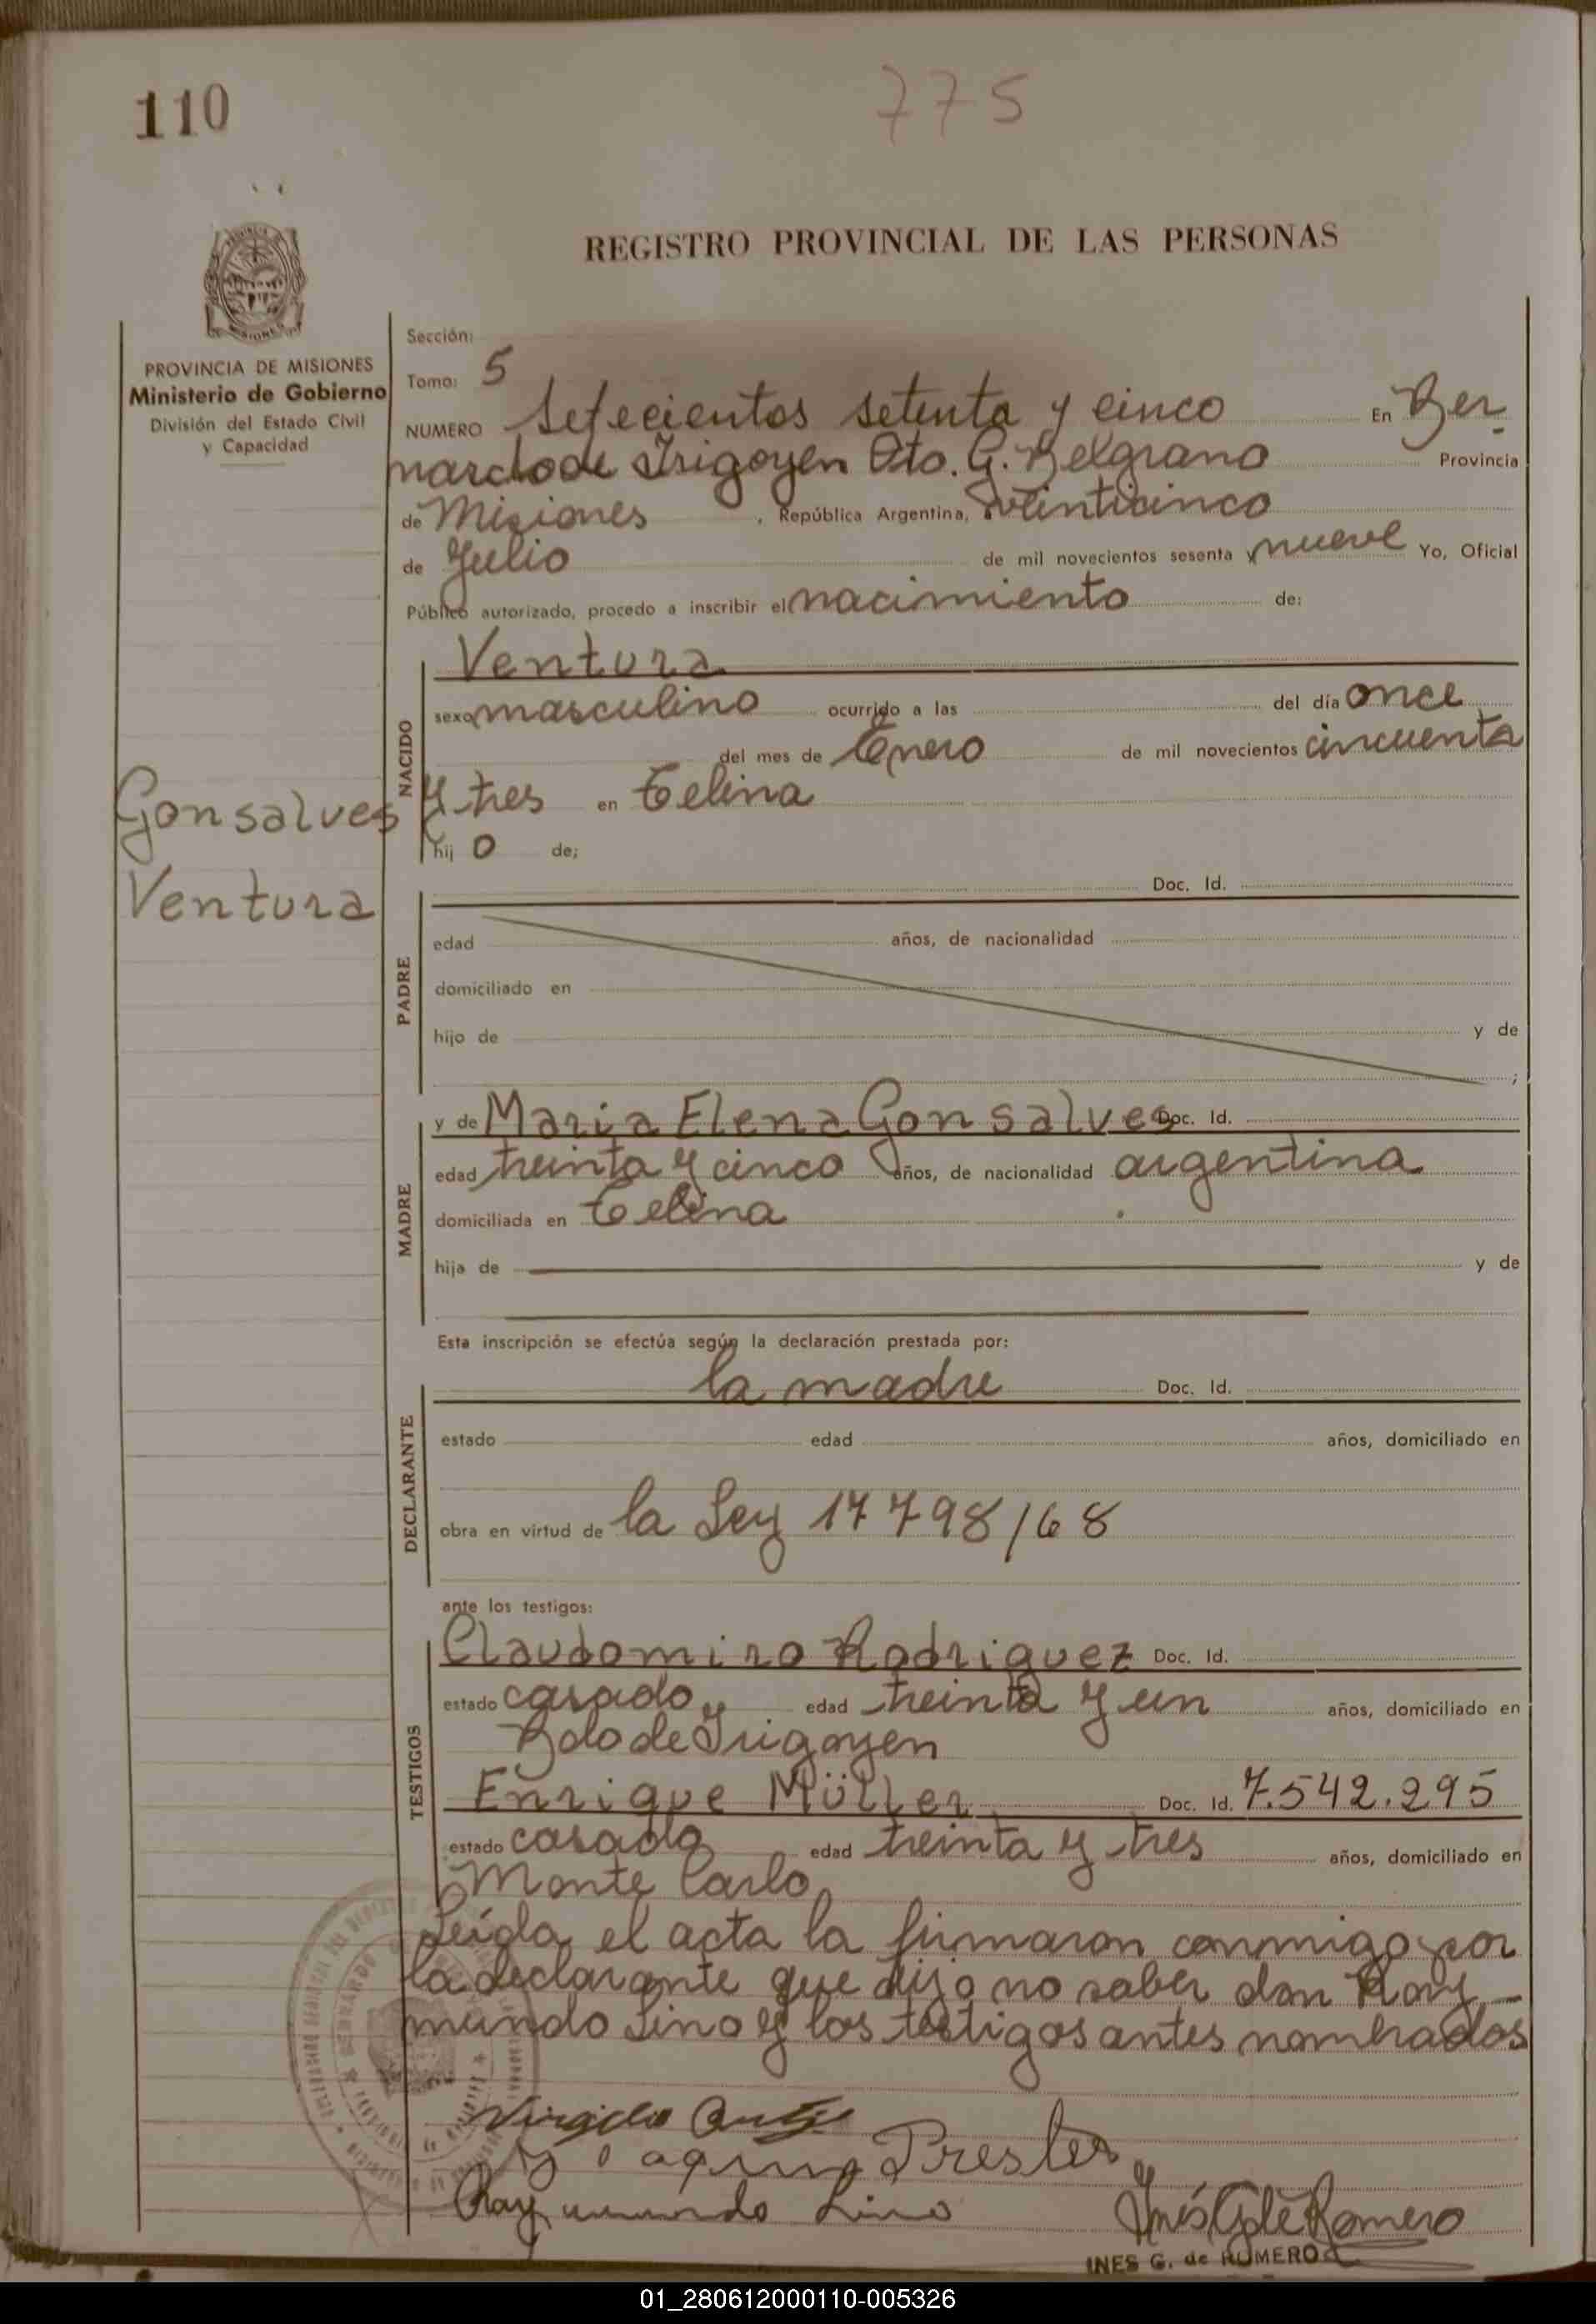 110
775
REGISTRO PROVINCIAL DE LAS PERSONAS
PROVINCIA DE MISIONES
Ministerio de Gobierno
División del Estado Civil
y Capacidad
Sección:
Tomo: 5
NUMERO Setecientos setenta y cinco En Ber
nardo de Irigoyen Dto. G. Belgrano Provincia
de Misiones, República Argentina, a veinticinco
de Julio de mil novecientos sesenta y nueve Yo, Oficial
Público autorizado, procedo a inscribir el nacimiento de:
Ventura
NACIDO
sexo masculino ocurrido a las del día once
del mes de Enero de mil novecientos cincuenta
y tres en Celina
hijo de;
Gonsalves
Ventura
PADRE
Doc. Id.
edad años, de nacionalidad
domiciliado en
hijo de y de
;
MADRE
y de Maria Elena Gonsalves Doc. Id.
edad treinta y cinco años, de nacionalidad argentina
domiciliada en Celina
hija de y de
Esta inscripción se efectúa según la declaración prestada por:
DECLARANTE
la madre Doc. Id.
estado edad años, domiciliado en
obra en virtud de la Ley 17798/68
ante los testigos:
TESTIGOS
Claudomiro Rodriguez Doc. Id.
estado casado edad treinta y un años, domiciliado en
Bdo de Irigoyen
Enrique Müller Doc. Id. 7.542.295
estado casado edad treinta y tres años, domiciliado en
Monte Carlo
Leída el acta la firmaron conmigo por
la declarante que dijo no saber don Ray
mundo Lino y los testigos antes nombrados
Virgilio
Prestes
Raymundo Lino
Inés G de Romero
INES G. de ROMERO
01_280612000110-005326